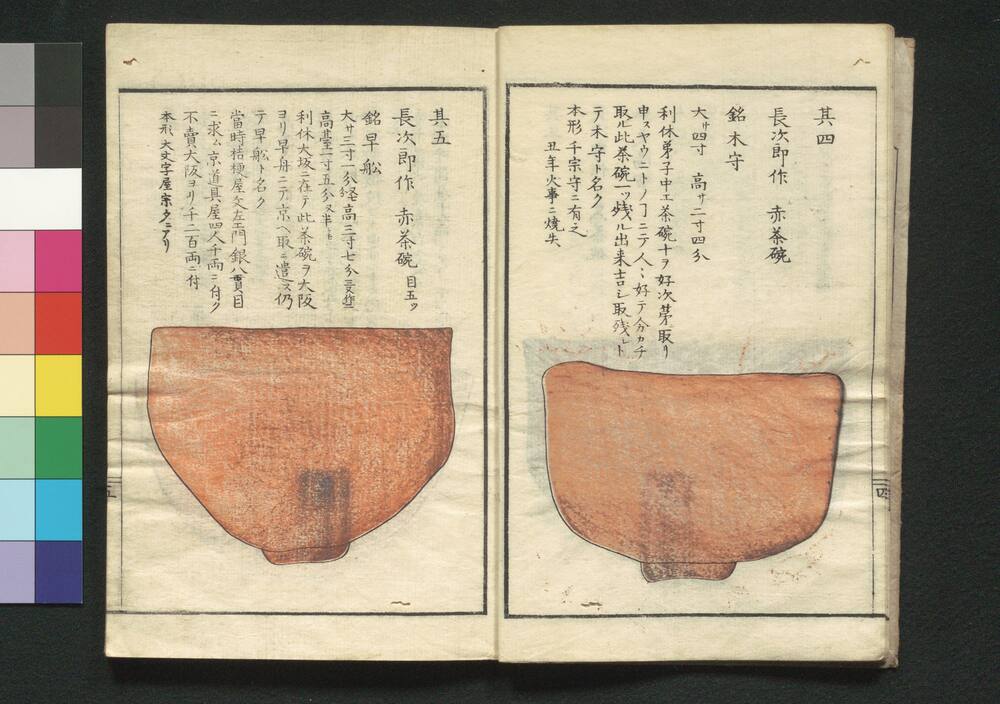 其四
長次郎作 赤茶碗
銘木守
大サ四寸 高サ二寸四分
利休弟子中エ茶碗十ヲ好次第取リ
申スヤウニトノヿニテ人〻好テ分カチ
取ル此茶碗一ッ残ル出来吉シ取残シト
テ木守ト名ク
本形 千宗守ニ有之
丑年火事ニ焼失
四
其五
長次郎作 赤茶碗 目五ッ
銘早舩
大サ三寸一分 高三寸七分
高臺一寸五分
利休大坂ニ在テ此茶碗ヲ大阪
ヨリ早舟ニテ京ヘ取ニ遣ス仍
テ早舩ト名ク
當時桔梗屋文左エ門銀八貫目
ニ求ム京道具屋四人千両ニ付ク
不賣大阪ヨリ千二百両ニ付
本形大文字屋宗
五